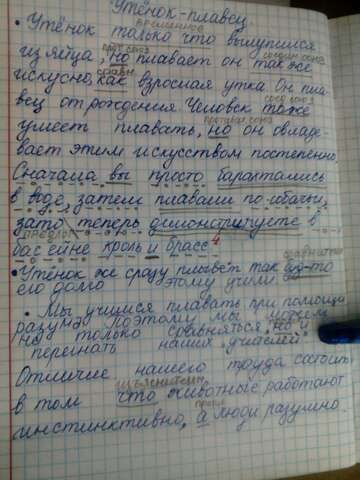 Утёнок-плавец
временной
• Утёнок только что вылупился
прот. союз соедин. союз
из яйца, но плавает он так же
сравн.
искусно, как взрослая утка. Он пла-
соед. союз
вец от рождения. Человек тоже
против. союз
умеет плавать, но он овладе-
вает этим искусством постепенно.
Сначала вы просто барахтались
в воде, затем плавали по-собачьи,
зато теперь демонстрируете в
бассейне кроль и брасс 4
• Утёнок же сразу плывёт так будто
его долго этому учили
• Мы учимся плавать при помощи
разума. Поэтому мы можем
не только сравняться, но и
перегнать наших учителей.
Отличие нашего труда состоит
изъяснительн.
в том что животные работают
против.
инстинктивно, а люди разумно.